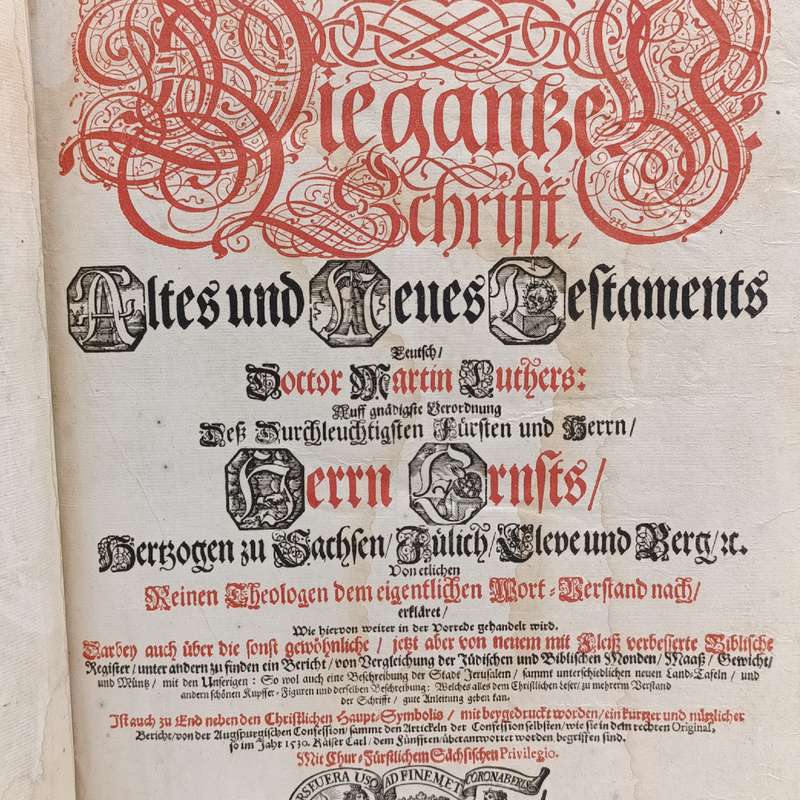 Die gantze H.
Schrifft,
Altes und Neues Testaments
Teutsch/
Doctor Martin Luthers:
Auff gnädigste Verordnung
Deß Durchleuchtigsten Fürsten und Herrn/
Herrn Ernsts/
Hertzogen zu Sachsen/ Jülich/ Cleve und Berg/ ꝛc.
Von etlichen
Reinen Theologen dem eigentlichen Wort-Verstand nach/
erkläret/
Wie hiervon weiter in der Vorrede gehandelt wird.
Darbey auch über die sonst gewöhnliche / jetzt aber von neuem mit Fleiß verbesserte Biblische
Register/ unter andern zu finden ein Bericht/ von Vergleichung der Jüdischen und Biblischen Monden/ Maaß/ Gewicht/
und Müntz/ mit den Unserigen: So wol auch eine Beschreibung der Stadt Jerusalem/ sammt unterschiedlichen neuen Land-Tafeln/ und
andern schönen Kupffer-Figuren und derselben Beschreibung: Welches alles dem Christlichen Leser/ zu mehrerm Verstand
der Schrifft/ gute Anleitung geben kan.
Ist auch zu End neben den Christlichen Haupt/Symbolis / mit beygedruckt worden/ ein kurtzer und nützlicher
Bericht/ von der Augspurgischen Confession/ sammt den Articteln der Confession selbsten/ wie sie in dem rechten Original,
so im Jahr 1530. Käiser Carl/ dem Fünfften/ überantwortet worden/ begriffen sind.
Mit Chur-Fürstlichem Sächsischen Privilegio.
RSEUERA USQ AD FINEM ET CORONABERIS